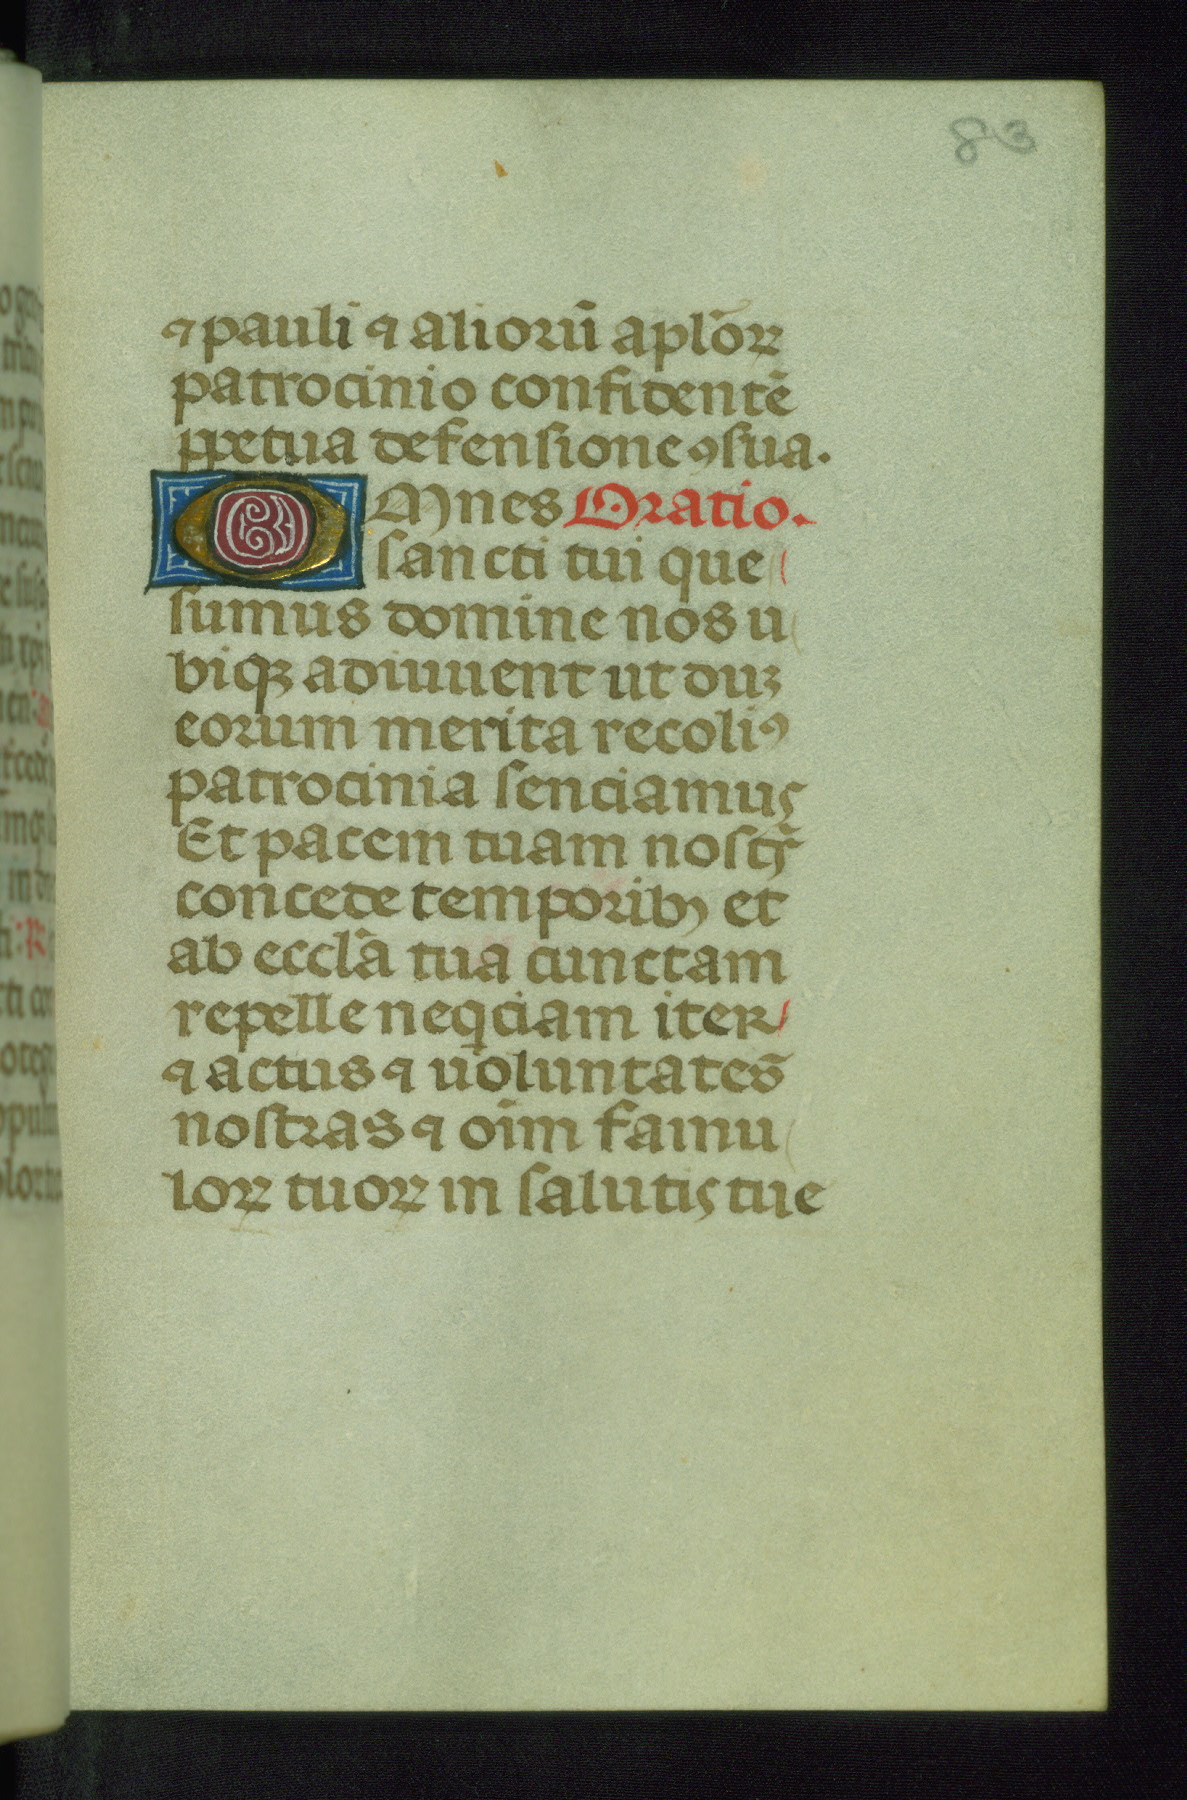 83
⁊ pauli ⁊ aliorū aplōꝝ
patrocinio confidentē
ꝑpetua defensione ꝯſua.
OMnes Oratio.
sancti tui que
sumus domine nos u
biqꝫ adiuuent ut duꝫ
eorum merita recoliꝰ
patrocinia senciamus
Et pacem tuam nostꝭ̄
concede temporibꝰ et
ab eccl̄a tua cunctam
repelle neqciam iter
⁊ actus ⁊ uoluntates
nostras ⁊ oīm famu
loꝝ tuoꝝ in salutis tue